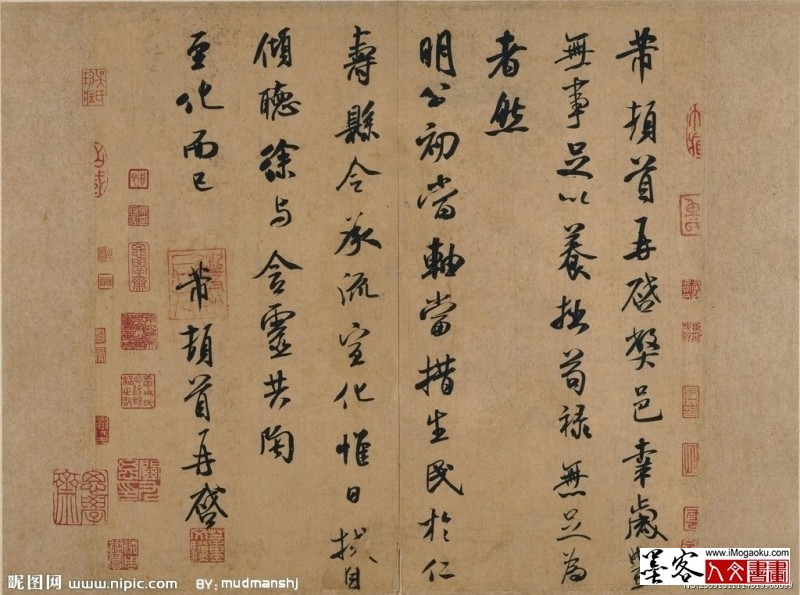 芾頓首再啓弊邑幸歲豐
無事足以養拙苟祿無足為
者然
明公初當軸當措生民於仁
壽縣令承流宣化惟日拭目
傾聽徐与含靈共陶
至化而已 芾頓首再啓
昵图网 www.nipic.com BY: mudmanshj
墨客 www.iMogaoku.com
人文書畫